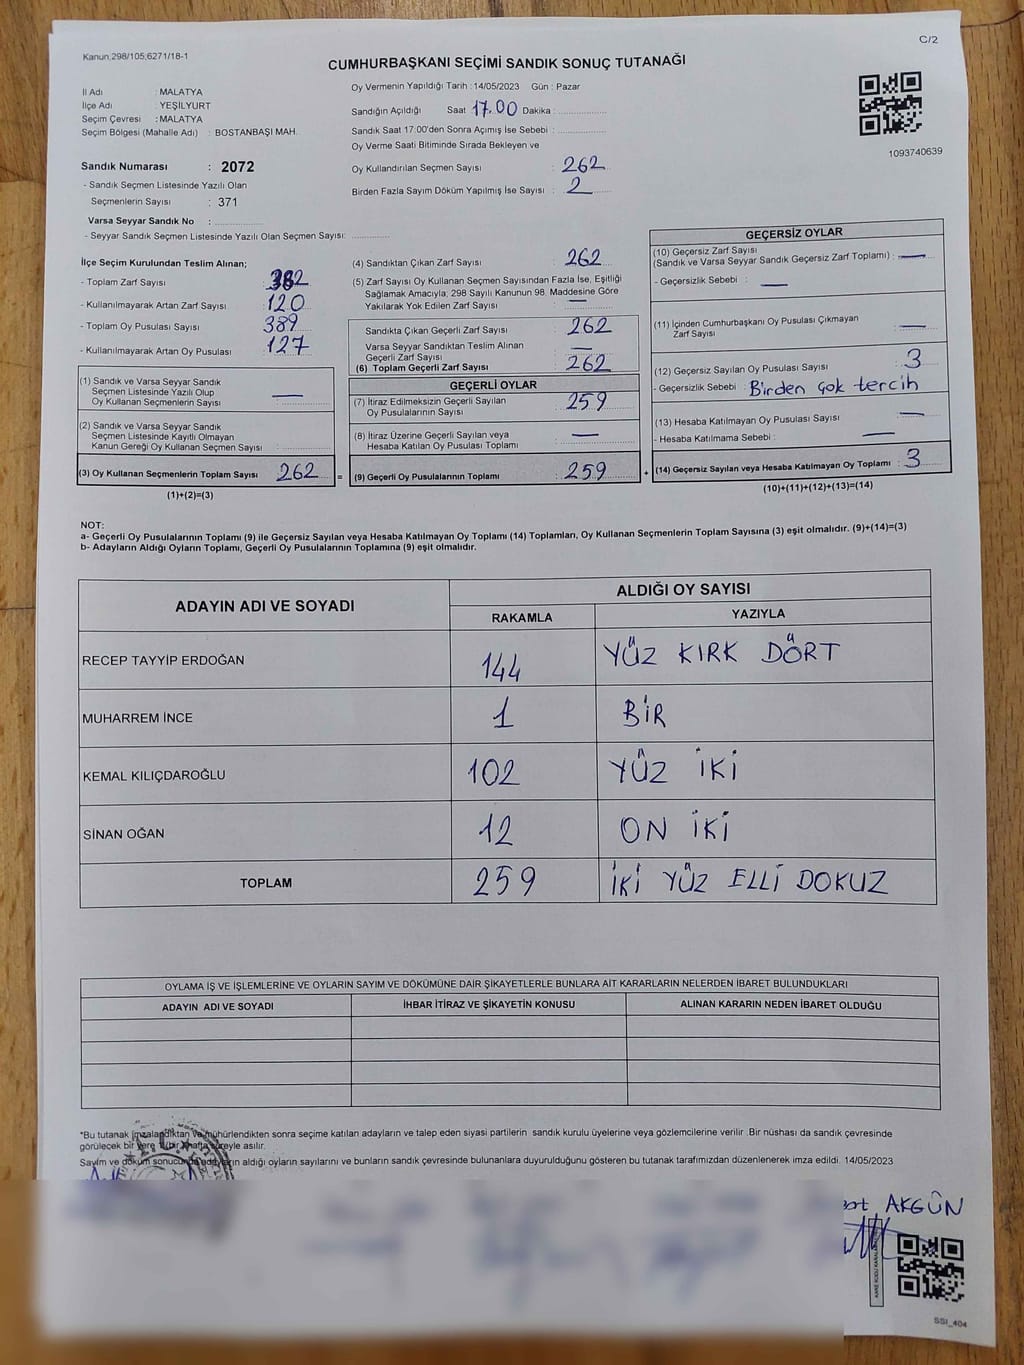 C/2
Kanun,298/105,6271/18-1
CUMHURBAŞKANI SEÇİMİ SANDIK SONUÇ TUTANAĞI
İl Adı : MALATYA
İlçe Adı : YEŞİLYURT
Seçim Çevresi : MALATYA
Seçim Bölgesi (Mahalle Adı) : BOSTANBAŞI MAH.
Sandık Numarası : 2072
- Sandık Seçmen Listesinde Yazılı Olan
Seçmenlerin Sayısı : 371
Varsa Seyyar Sandık No :
- Seyyar Sandık Seçmen Listesinde Yazılı Olan Seçmen Sayısı:
Oy Vermenin Yapıldığı Tarih : 14/05/2023 Gün : Pazar
Sandığın Açıldığı Saat 17.00 Dakika :
Sandık Saat 17:00'den Sonra Açımış İse Sebebi :
Oy Verme Saati Bitiminde Sırada Bekleyen ve
Oy Kullandırılan Seçmen Sayısı : 262
Birden Fazla Sayım Döküm Yapılmış İse Sayısı : 2
1093740639
İlçe Seçim Kurulundan Teslim Alınan;
- Toplam Zarf Sayısı : 382
- Kullanılmayarak Artan Zarf Sayısı : 120
- Toplam Oy Pusulası Sayısı : 389
- Kullanılmayarak Artan Oy Pusulası : 127
(1) Sandık ve Varsa Seyyar Sandık
Seçmen Listesinde Yazılı Olup
Oy Kullanan Seçmenlerin Sayısı : —
(2) Sandık ve Varsa Seyyar Sandık
Seçmen Listesinde Kayıtlı Olmayan
Kanun Gereği Oy Kullanan Seçmen Sayısı :
(3) Oy Kullanan Seçmenlerin Toplam Sayısı : 262 =
(1)+(2)=(3)
(4) Sandıktan Çıkan Zarf Sayısı : 262
(5) Zarf Sayısı Oy Kullanan Seçmen Sayısından Fazla İse, Eşitliği
Sağlamak Amacıyla; 298 Sayılı Kanunun 98. Maddesine Göre
Yakılarak Yok Edilen Zarf Sayısı : —
Sandıkta Çıkan Geçerli Zarf Sayısı : 262
Varsa Seyyar Sandıktan Teslim Alınan
Geçerli Zarf Sayısı : —
(6) Toplam Geçerli Zarf Sayısı : 262
GEÇERLİ OYLAR
(7) İtiraz Edilmeksizin Geçerli Sayılan
Oy Pusulalarının Sayısı : 259
(8) İtiraz Üzerine Geçerli Sayılan veya
Hesaba Katılan Oy Pusulası Toplamı : —
(9) Geçerli Oy Pusulalarının Toplamı : 259 +
GEÇERSİZ OYLAR
(10) Geçersiz Zarf Sayısı
(Sandık ve Varsa Seyyar Sandık Geçersiz Zarf Toplamı) : —
- Geçersizlik Sebebi : —
(11) İçinden Cumhurbaşkanı Oy Pusulası Çıkmayan
Zarf Sayısı : —
(12) Geçersiz Sayılan Oy Pusulası Sayısı : 3
- Geçersizlik Sebebi : Birden çok tercih
(13) Hesaba Katılmayan Oy Pusulası Sayısı : —
- Hesaba Katılmama Sebebi : —
(14) Geçersiz Sayılan veya Hesaba Katılmayan Oy Toplamı : 3
(10)+(11)+(12)+(13)=(14)
NOT:
a- Geçerli Oy Pusulalarının Toplamı (9) ile Geçersiz Sayılan veya Hesaba Katılmayan Oy Toplamı (14) Toplamları, Oy Kullanan Seçmenlerin Toplam Sayısına (3) eşit olmalıdır. (9)+(14)=(3)
b- Adayların Aldığı Oyların Toplamı, Geçerli Oy Pusulalarının Toplamına (9) eşit olmalıdır.
ADAYIN ADI VE SOYADI ALDIĞI OY SAYISI
RAKAMLA YAZIYLA
RECEP TAYYİP ERDOĞAN 144 YÜZ KIRK DÖRT
MUHARREM İNCE 1 BİR
KEMAL KILIÇDAROĞLU 102 YÜZ İKİ
SİNAN OĞAN 12 ON İKİ
TOPLAM 259 İKİ YÜZ ELLİ DOKUZ
OYLAMA İŞ VE İŞLEMLERİNE VE OYLARIN SAYIM VE DÖKÜMÜNE DAİR ŞİKAYETLERLE BUNLARA AİT KARARLARIN NELERDEN İBARET BULUNDUKLARI
ADAYIN ADI VE SOYADI İHBAR İTİRAZ VE ŞİKAYETİN KONUSU ALINAN KARARIN NEDEN İBARET OLDUĞU
*Bu tutanak imzalandıktan ve mühürlendikten sonra seçime katılan adayların ve talep eden siyasi partilerin sandık kurulu üyelerine veya gözlemcilerine verilir .Bir nüshası da sandık çevresinde
görülecek bir yere 1(bir) hafta süreyle asılır.
Sayım ve döküm sonucunda adayların aldığı oyların sayılarını ve bunların sandık çevresinde bulunanlara duyurulduğunu gösteren bu tutanak tarafımızdan düzenlenerek imza edildi. 14/05/2023
AKGÜN
SSI_404